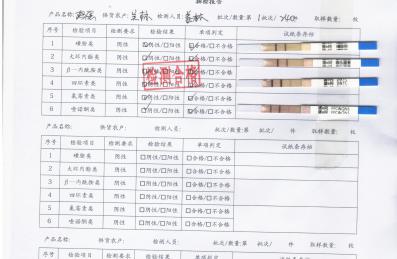 检验报告
产品名称: 供货农户: 检测人员: 批次/数量:第 批次/ 取样数量: 枚
序号 检验项目 检测要求 检验结果 单项判定 试纸条存贴
1 磺胺类 阴性 ☑阴性/□阳性 ☑合格/□不合格
2 大环内酯类 阴性 ☑阴性/□阳性 ☑合格/□不合格
3 β-内酰胺类 阴性 ☑阴性/□阳性 ☑合格/□不合格
4 四环素类 阴性 ☑阴性/□阳性 ☑合格/□不合格
5 氯霉素类 阴性 ☑阴性/□阳性 ☑合格/□不合格
6 喹诺酮类 阴性 ☑阴性/□阳性 ☑合格/□不合格
检测合格
产品名称: 供货农户: 检测人员: 批次/数量:第 批次/ 件 取样数量: 枚
序号 检验项目 检测要求 检验结果 单项判定 试纸条存贴
1 磺胺类 阴性 □阴性/□阳性 □合格/□不合格
2 大环内酯类 阴性 □阴性/□阳性 □合格/□不合格
3 β-内酰胺类 阴性 □阴性/□阳性 □合格/□不合格
4 四环素类 阴性 □阴性/□阳性 □合格/□不合格
5 氯霉素类 阴性 □阴性/□阳性 □合格/□不合格
6 喹诺酮类 阴性 □阴性/□阳性 □合格/□不合格
产品名称: 供货农户: 检测人员: 批次/数量:第 批次/ 件 取样数量: 枚
序号 检验项目 检测要求 检验结果 单项判定